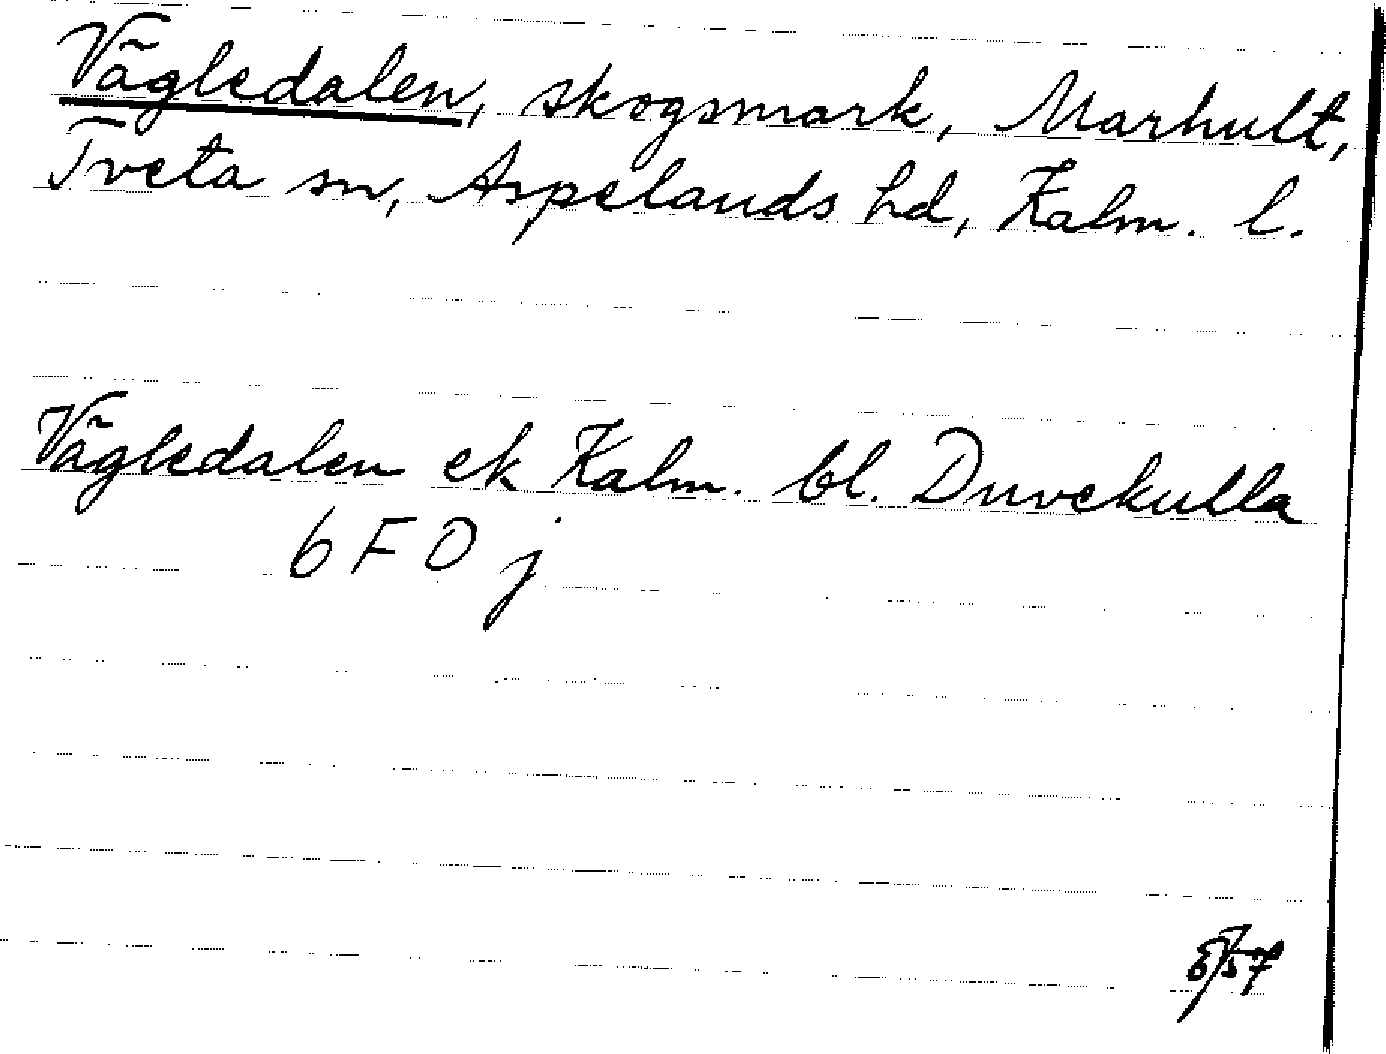 Vägledalen, skogsmark, Marhult,
Tveta sn, Aspelands hd, Kalm. l.
Vägledalen ek Kalm. bl. Duvekulla
6 F 0 j